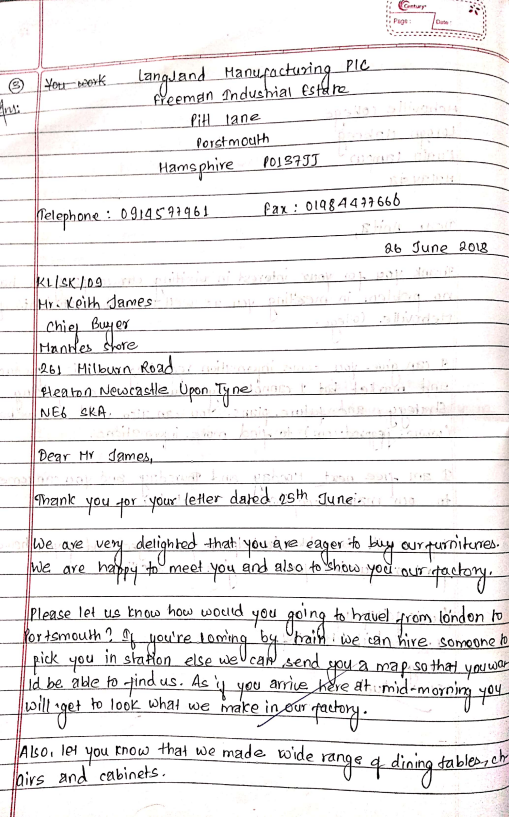 Century
Page: Date:
③ You work Langland Manufacturing PLC
Ans: Freeman Industrial Estate
Pitt lane
Porstmouth
Hamsphire PO137JJ
Telephone: 0914577961 Fax: 01984477666
26 June 2018
KL/SK/09
Mr. Keith James
Chief Buyer
store
261 Milburn Road
Heaton Newcastle Upon Tyne
NE6 SKA.
Dear Mr James,
Thank you for your letter dated 25th June.
We are very delighted that you are eager to buy our furnitures.
We are happy to meet you and also to show you our factory.
Please let us know how would you going to travel from london to
Portsmouth? If you're coming by train we can hire someone to
pick you in station else we can send you a map so that you wou
ld be able to find us. As if you arrive here at mid-morning you
will get to look what we make in our factory.
Also, let you know that we made wide range of dining tables, ch
airs and cabinets.